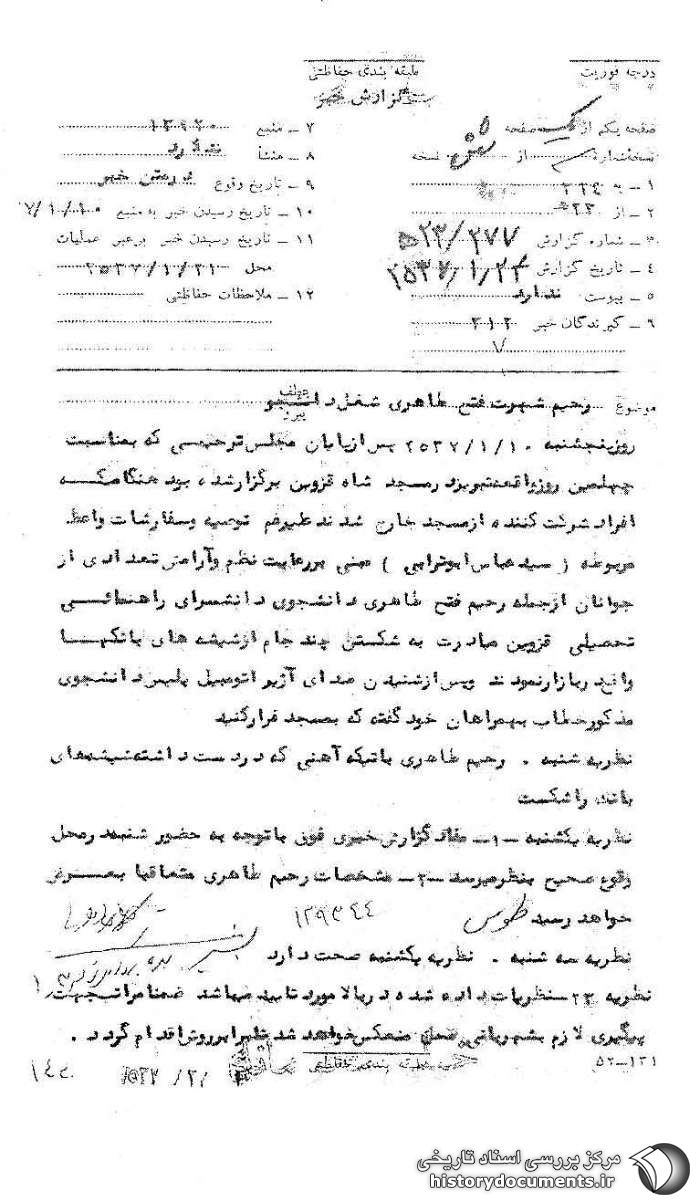 درجه فوریت
طبقه بندی حفاظتی
گزارش خبر
صفحه یکم از صفحه
نسخه شماره از نسخه
۱ ـ به ۳۳۴
۲ ـ از ۲۳ ه
۳ ـ شماره گزارش ۲۷۷/ ۲۳ ه
۴ ـ تاریخ گزارش ۲۵۳۷/۱/۲۴
۵ ـ پیوست ندارد
۶ ـ گیرندگان خبر ۳۱۲
۷ ـ منبع ۱۳۹۲۰
۸ ـ منشأ
۹ ـ تاریخ وقوع در متن خبر
۱۰ ـ تاریخ رسیدن خبر به منبع ۷/۱/۱۰
۱۱ ـ تاریخ رسیدن خبر برهبر عملیات
محل ۲۵۳۷/۱/۲۱
۱۲ ـ ملاحظات حفاظتی
موضوع رحیم شهرت فتح طاهری شغل دانشجو
روزپنجشنبه ۲۵۳۷/۱/۱۰ پس ازپایان مجلس ترحیمی که بمناسبت
چهلمین روزواقعه تبریزد رمسجد شاه قزوین برگزارشده بود هنگامیکه
افراد شرکت کننده ازمسجد خارج شدند علیرغم توصیه وسفارشات واعظ
مربوطه ( سید عباس ابوترابی ) مبنی بررعایت نظم وآرامش تعدادی از
جوانان ازجمله رحیم فتح طاهری دانشجوی دانشسرای راهنمائی
تحصیلی قزوین مبادرت به شکستن چند جام ازشیشه های بانکها
واقع دربازارنمودند وپس ازشنیدن صدای آژیر اتومبیل پلیس دانشجوی
مذکورخطاب بهمراهان خود گفته که بمسجد فرارکنید
نظریه شنبه . رحیم طاهری باتیکه آهنی که دردست داشته شیشه های
بانک راشکست
نظریه یکشنبه ـ۱ـ مفاد گزارش خبری فوق باتوجه به حضور شنبه درمحل
وقوع صحیح بنظرمیرسد ـ۲ـ مشخصات رحیم طاهری متعاقبا بعرض
خواهد رسید طوس ۱۲۹۳۴۴
نظریه سه شنبه . نظریه یکشنبه صحت دارد
نظریه ۲۳ ه نظریات داده شده دربالا مورد تایید میباشد ضمنا مراتب جهت
پیگیری لازم بشهربانی محل منعکس خواهد شد تابرابرروش اقدام گردد .
طبقه بندی حفاظتی
۵۲ـ۱۳۱
مرکز بررسی اسناد تاریخی
historydocuments.ir